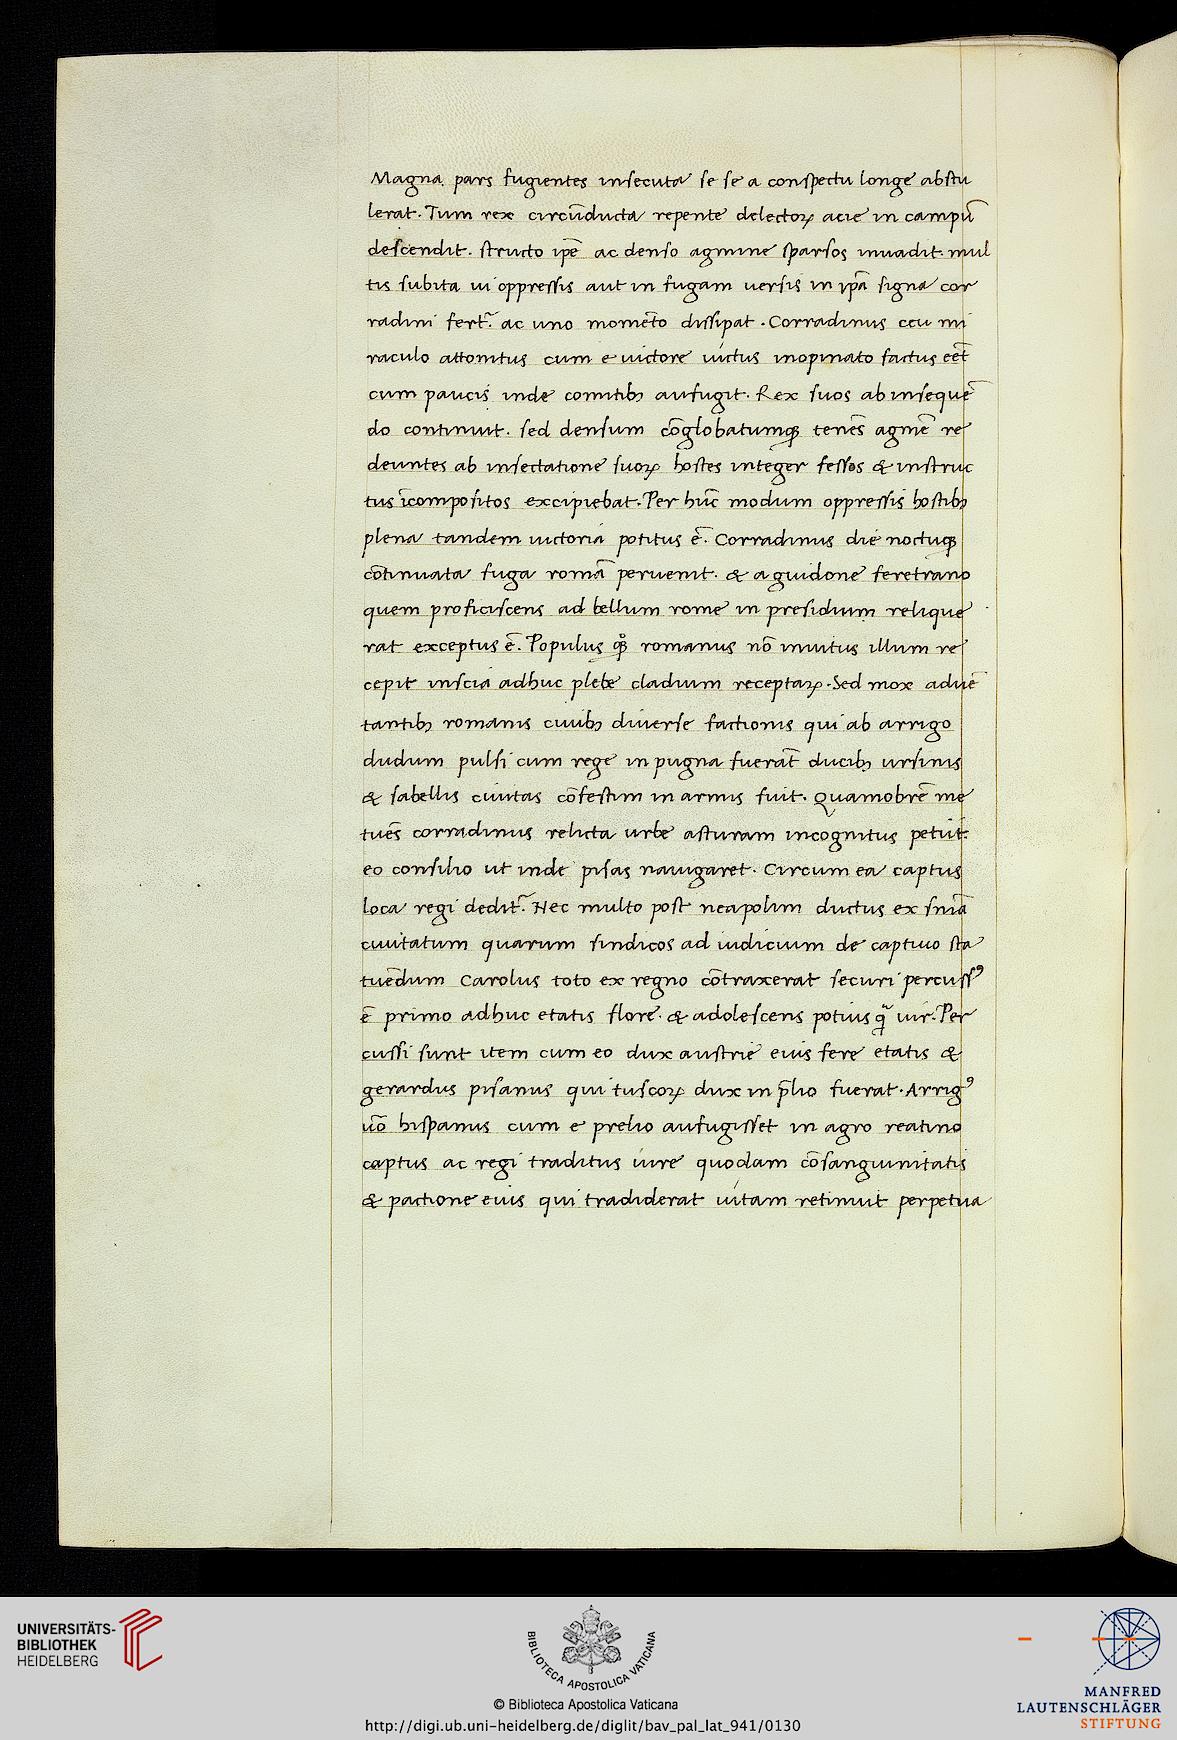 Magna pars fugientes insecuta se se a conspectu longe abstu
lerat. Tum rex circūducta repente delectoꝝ acie in campū
descendit. structo ip̄e ac denso agmine sparsos inuadit. mul
tis subita ui oppressis aut in fugam uersis in ip̄a signa cor
radini fert᷑. ac uno momēto dissipat. Corradinus ceu mi
raculo attonitus cum e uictore uictus inopinato factus eēt
cum paucis inde comitibꝫ aufugit. Rex suos ab insequē
do continuit. sed densum cōglobatumqꝫ tenēs agmē re
deuntes ab insectatione suoꝝ hostes integer fessos & instruc
tus īcompositos excipiebat. Per hūc modum oppressis hostibꝫ
plena tandem uictoria potitus ē. Corradinus die noctuqꝫ
cōtinuata fuga romā peruenit. & a guidone feretrano
quem proficiscens ad bellum rome in presidium relique
rat exceptus ē. Populus qͦqꝫ romanus nō inuitus illum re
cepit inscia adhuc plebe cladium receptaꝝ. Sed mox aduē
tantibꝫ romanis ciuibꝫ diuerse factionis qui ab arrigo
dudum pulsi cum rege in pugna fuerāt ducibꝫ ursinis
& sabellis ciuitas cōfestim in armis fuit. Quamobrē me
tuēs corradinus relicta urbe asturam incognitus petiit.
eo consilio ut inde pisas nauigaret. Circum ea captus
loca regi dedit᷑. Nec multo post neapolim ductus ex sniā
ciuitatum quarum sindicos ad iudicium de captiuo sta
tuēdum Carolus toto ex regno cōtraxerat securi percussꝰ
ē primo adhuc etatis flore. & adolescens potius qᷓ uir. Per
cussi sunt item cum eo dux austrie eius fere etatis &
gerardus pisanus qui tuscoꝝ dux in p̄lio fuerat. Arrigꝰ
uō hispanus cum e prelio aufugisset in agro reatino
captus ac regi traditus iure quodam cōsanguinitatis
& pactione eius qui tradiderat uitam retinuit perpetua
UNIVERSITÄTS-
BIBLIOTHEK
HEIDELBERG
BIBLIOTECA APOSTOLICA VATICANA
© Biblioteca Apostolica Vaticana
http://digi.ub.uni-heidelberg.de/diglit/bav_pal_lat_941/0130
MANFRED
LAUTENSCHLÄGER
STIFTUNG